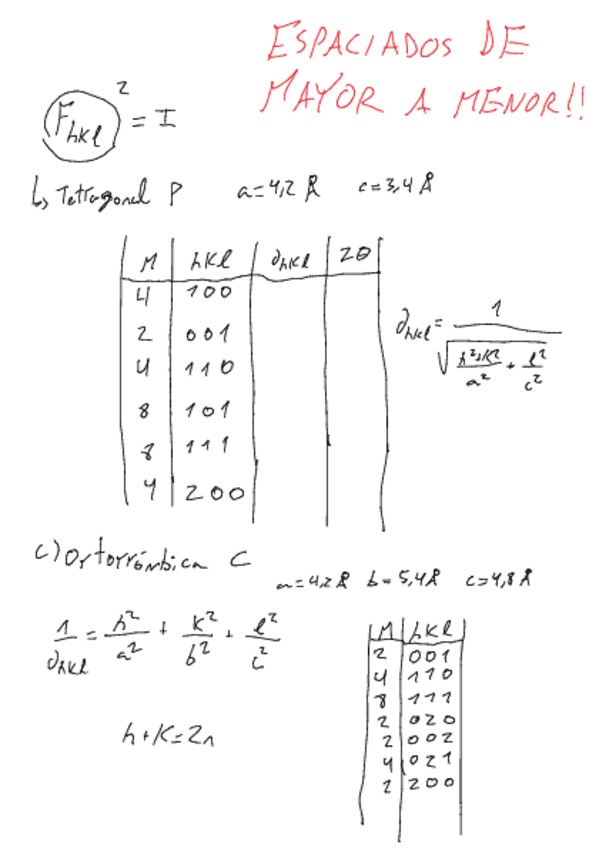 ESPACIADOS DE
MAYOR A MENOR!!
F_hkl² = I
b) Tetragonal P a=4,2 Å c=3,4 Å
M hkl d_hkl 2θ
4 100
2 001
4 110
8 101
8 111
4 200
d_hkl = 1 / √((h²+k²)/a² + l²/c²)
c) Ortorrómbica C
a=4,2 Å b=5,4 Å c=4,8 Å
1/d_hkl = h²/a² + k²/b² + l²/c²
h+k=2n
M hkl
2 001
4 110
8 111
2 020
2 002
4 021
2 200